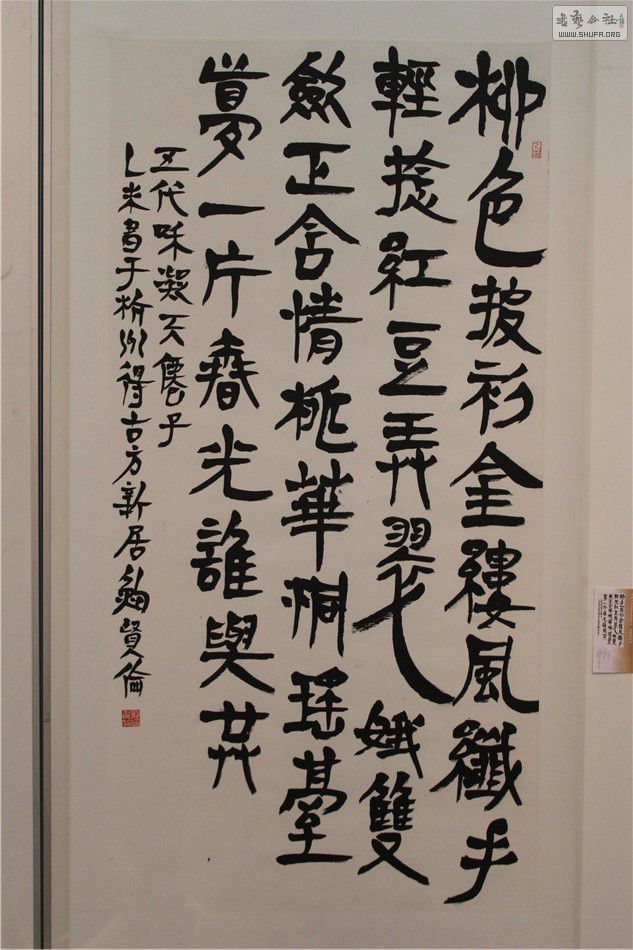 柳色披衫金縷風纖手
輕捻紅豆弄翠娥雙
斂正含情桃華洞瑤臺
夢一片春光誰與共
五代和凝天僊子
乙未于州得古方新居賢倫
書藝公社
WWW.SHUFA.ORG